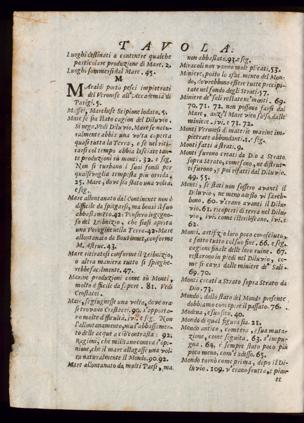 TAVOLA.
Luoghi destinati a contenere qualche
particolare produzione di Mare. 2.
Luoghi sommersi dal Mare. 45.
M
Maraldi porta pesci impietrati
del Veronese all'Accademia di
Parigi. 5.
Maffei, Marchese Scipione lodato, 5.
Mare se sia stato cagion del Diluvio.
Si nega. Vedi Diluvio. Mare se natu-
ralmente abbia una volta coperta
quasi tutta la Terra, e se nel riti-
rarsi col tempo abbia lasciate tan-
te produzioni su monti. 32. e seg.
Non si turbano i suoi fondi per
qualsivoglia tempesta più orrida.
25. Mare, dove sia stato una volta,
e seg.
Mare allontanato dal Continente non è
difficile da spiegarsi, ma bensì il suo
abbassamento. 42. Pensiero ingegno-
so del Leibnizio, che siasi aperta
una Voragine nella Terra. 42. Mare
allontanato da Bourdonet, conforme
M. Astruc. 43.
Mare ritiratosi conforme il Leibnizio,
o altra maniera tutto si spieghe-
rebbe facilmente. 47.
Marine produzioni come su Monti,
molto è facile da sapere. 81. Vedi
Crostacei.
Mari, se giugnesse una volta, dove ora
si trovano Crostacei. 90. s'apporta-
no molte difficoltà, ivi, e seg. Non
l'allontanamento, ma l'abbassamen-
to delle acque a ciò contrasta. 92.
Ragioni, che militano contra l'opi-
nione, che il mare allagasse una vol-
ta naturalmente il Mondo. 90. 92.
Mare allontanato da molti Paesi, ma
non abbassato. 93. e seg.
Miracoli non vanno moltiplicati. 53.
Miniere, posto lo sfacimento del Mon-
do, dovrebbono essere tutte precipi-
tate nel fondo degli Strati. 57.
Miniere de' Sali restate ne' monti. 69.
70. 71. 72. non possono farsi dal
Mare, anzi il Mare vien salso dalle
miniere, ivi. e 71. 72.
Monti Veronesi di materie marine im-
pietrite abbondanti. 1. e seg.
Monti fatti a strati. 6.
Monti furono creati da Dio a Strato
sopra Strato, come sono, ne distrut-
ti furono, e poi rifatti dal Diluvio.
49. 55.
Monti, se stati non fossero avanti il
Diluvio, ne meno adesso vi sareb-
bono. 60. v'erano avanti il Dilu-
vio. 61. veri pesci di terra nel Dilu-
vio, ivi. come ristessimamente, ivi.
62.
Monti, artifizio loro poco conosciuto,
e fatto tutto col suo fine. 66. e seg.
cagioni finali delle loro ruine. 67.
restarono in piedi nel Diluvio, co-
me si cava dalle miniere de' Sali.
69. 70.
Monti creati a Strato sopra Strato da
Dio. 73.
Mondo, dallo stato del Mondo presente
dobbiamo concepire il passato. 76.
Modena, e suo sito. 40.
Mondo di qual figura sia. 21.
Mondo antico, concetto, e sua muta-
zione, come seguita. 63. s'impu-
gna. 64. è sempre stato poco più
poco meno, com'è adesso. 65.
Mondo tornò come prima, dopo il Di-
luvio. 109. e creato frutto, e pian-
te